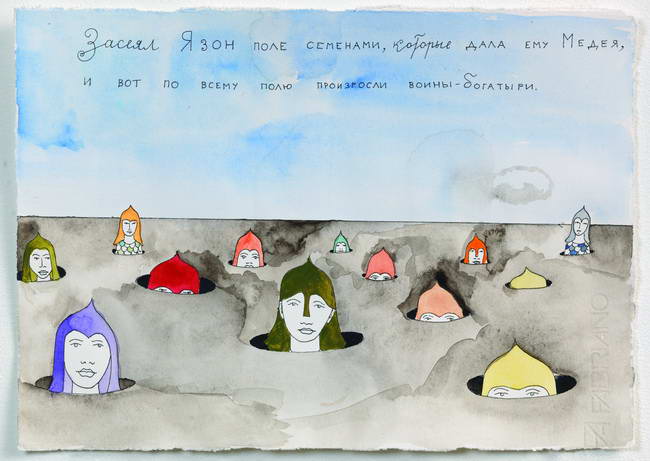 Засеял Язон поле семенами, которые дала ему Медея,
и вот по всему полю произросли воины-богатыри.
FABRIANO